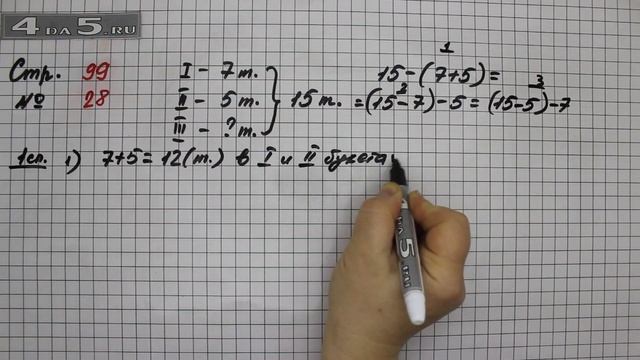 4 DA 5.RU
Стр. 99
№ 28
I - 7 т.
II - 5 т.
III - ? т.
15 т.
1
15-(7+5)=
2 3
=(15-7)-5=(15-5)-7
1 сп. 1) 7+5=12(т.) в I и II букета
4 DA 5.RU